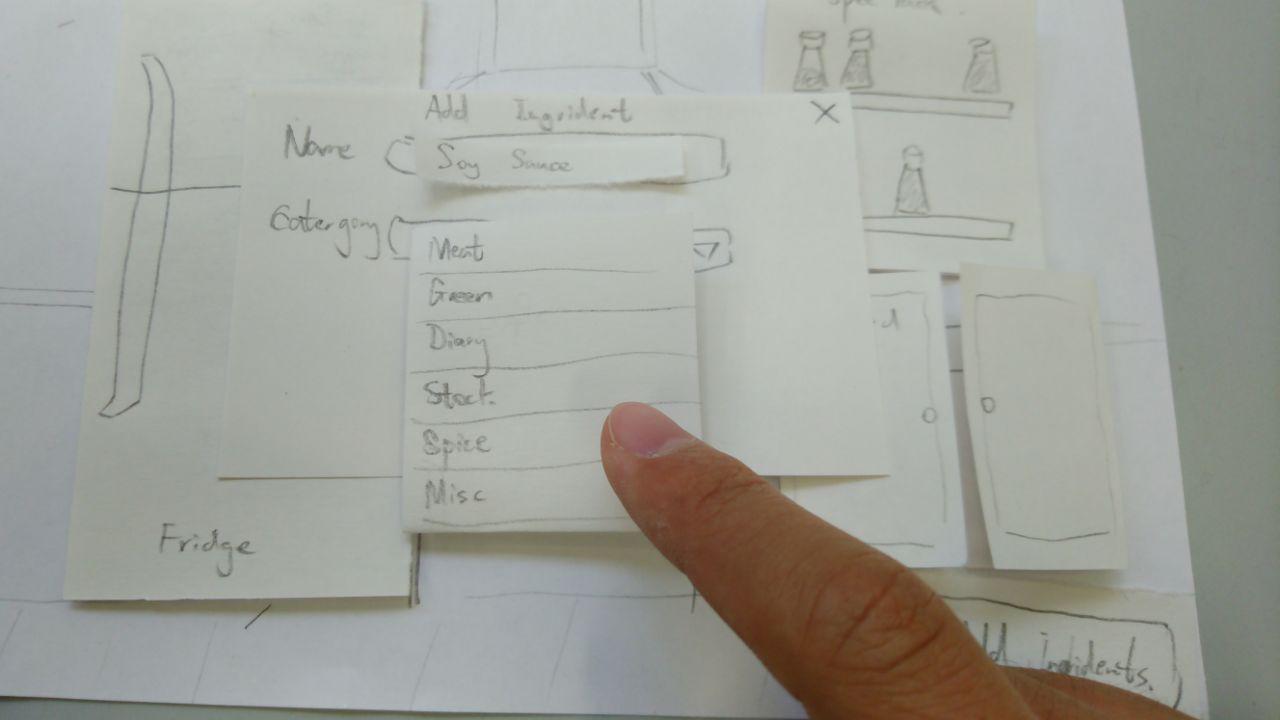 Add Ingrident
X
Name
Soy Sauce
Catergory
Meat
Green
Diary
Stock
Spice
Misc
Fridge
Add Ingridents.